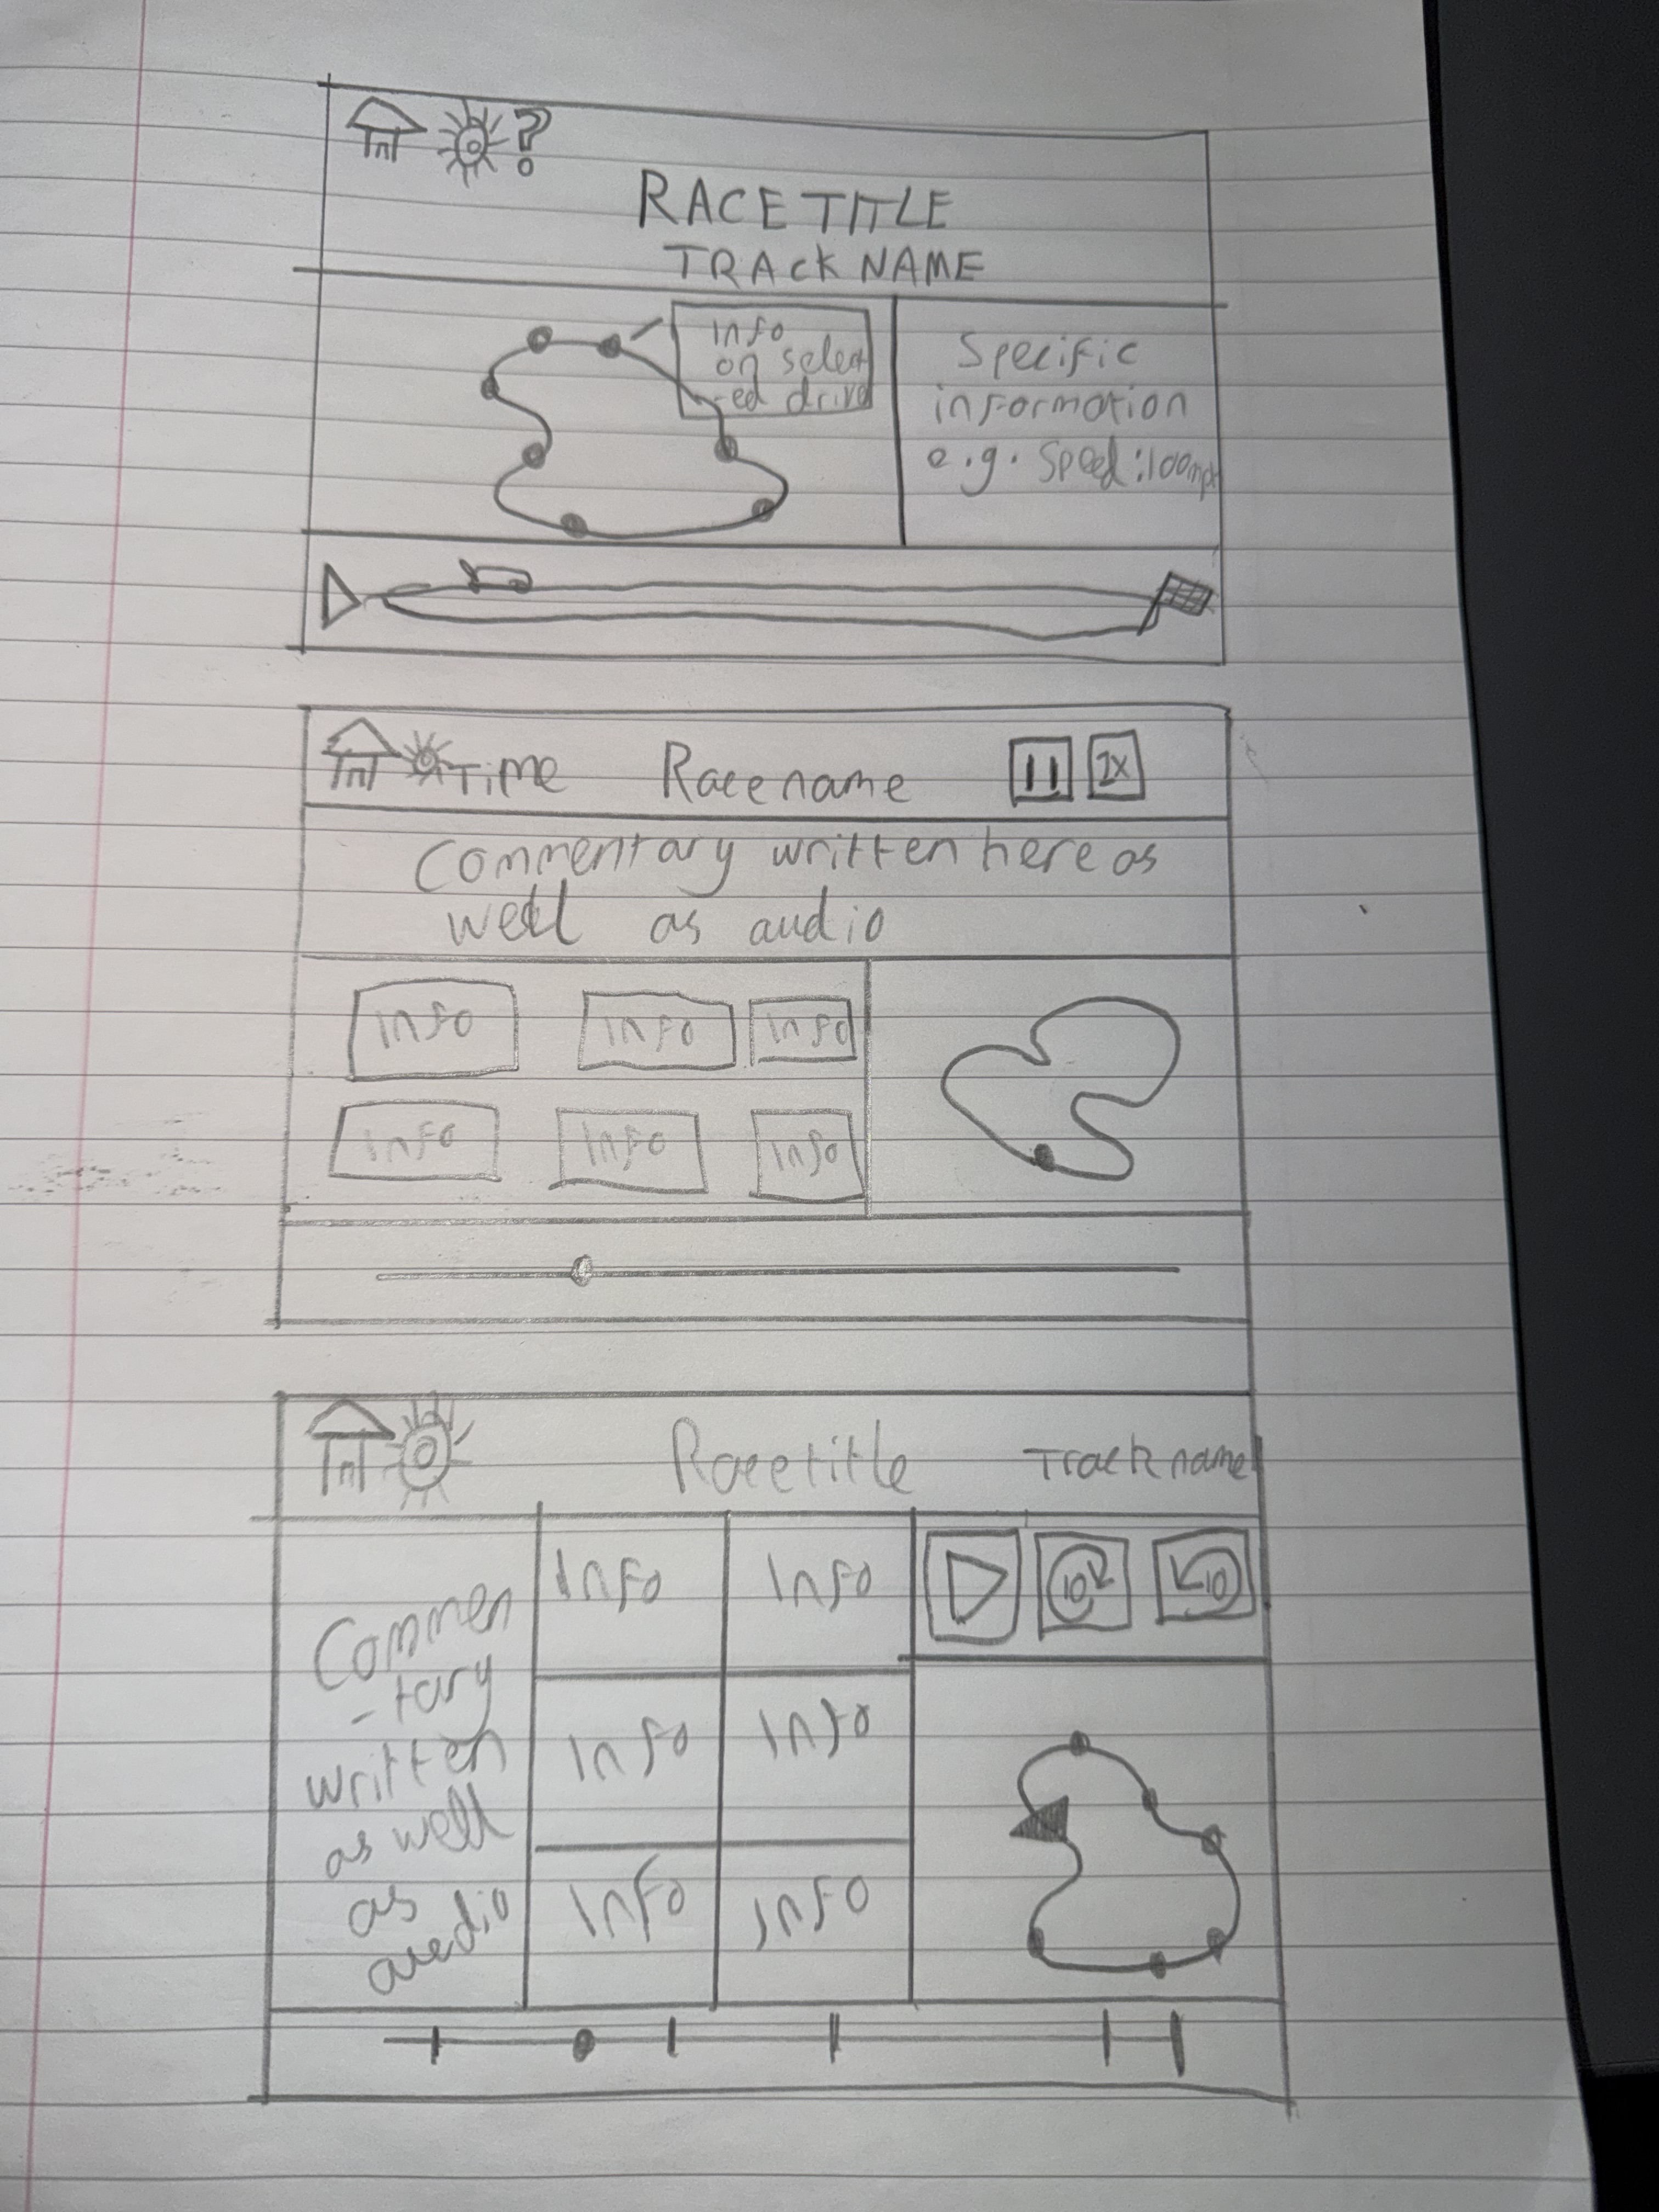 ?
RACE TITLE
TRACK NAME
Info
on select
-ed driver
Specific
information
e.g. Speed:100mph
Time Race name 2x
Commentary written here as
well as audio
Info Info Info
Info Info Info
Race title Track name
Info Info 10 10
Commen
-tary
written
as well
as
audio
Info Info
Info Info